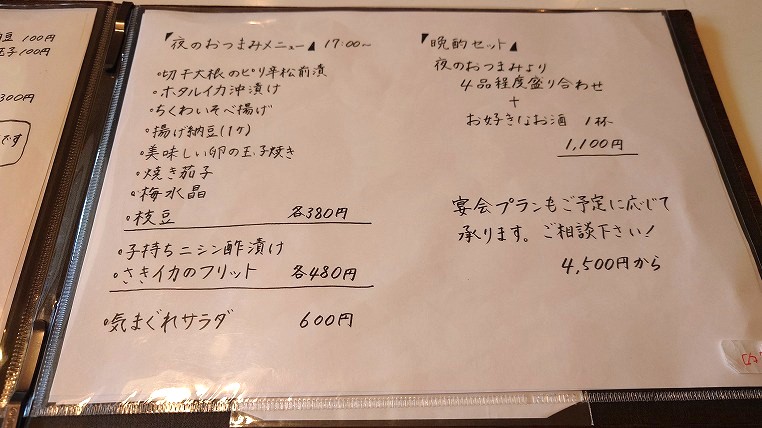 豆 100円
子100円
300円
です
夜のおつまみメニュー 17:00〜
・切干大根のピリ辛松前漬
・ホタルイカ沖漬け
・ちくわいそべ揚げ
・揚げ納豆(1ヶ)
・美味しい卵の玉子焼き
・焼き茄子
・梅水晶
・枝豆 各380円
・子持ちニシン酢漬け
・さきイカのフリット 各480円
・気まぐれサラダ 600円
晩酌セット
夜のおつまみより
4品程度盛り合わせ
+
お好きなお酒 1杯
1,100円
宴会プランもご予定に応じて
承ります。ご相談下さい!
4,500円から